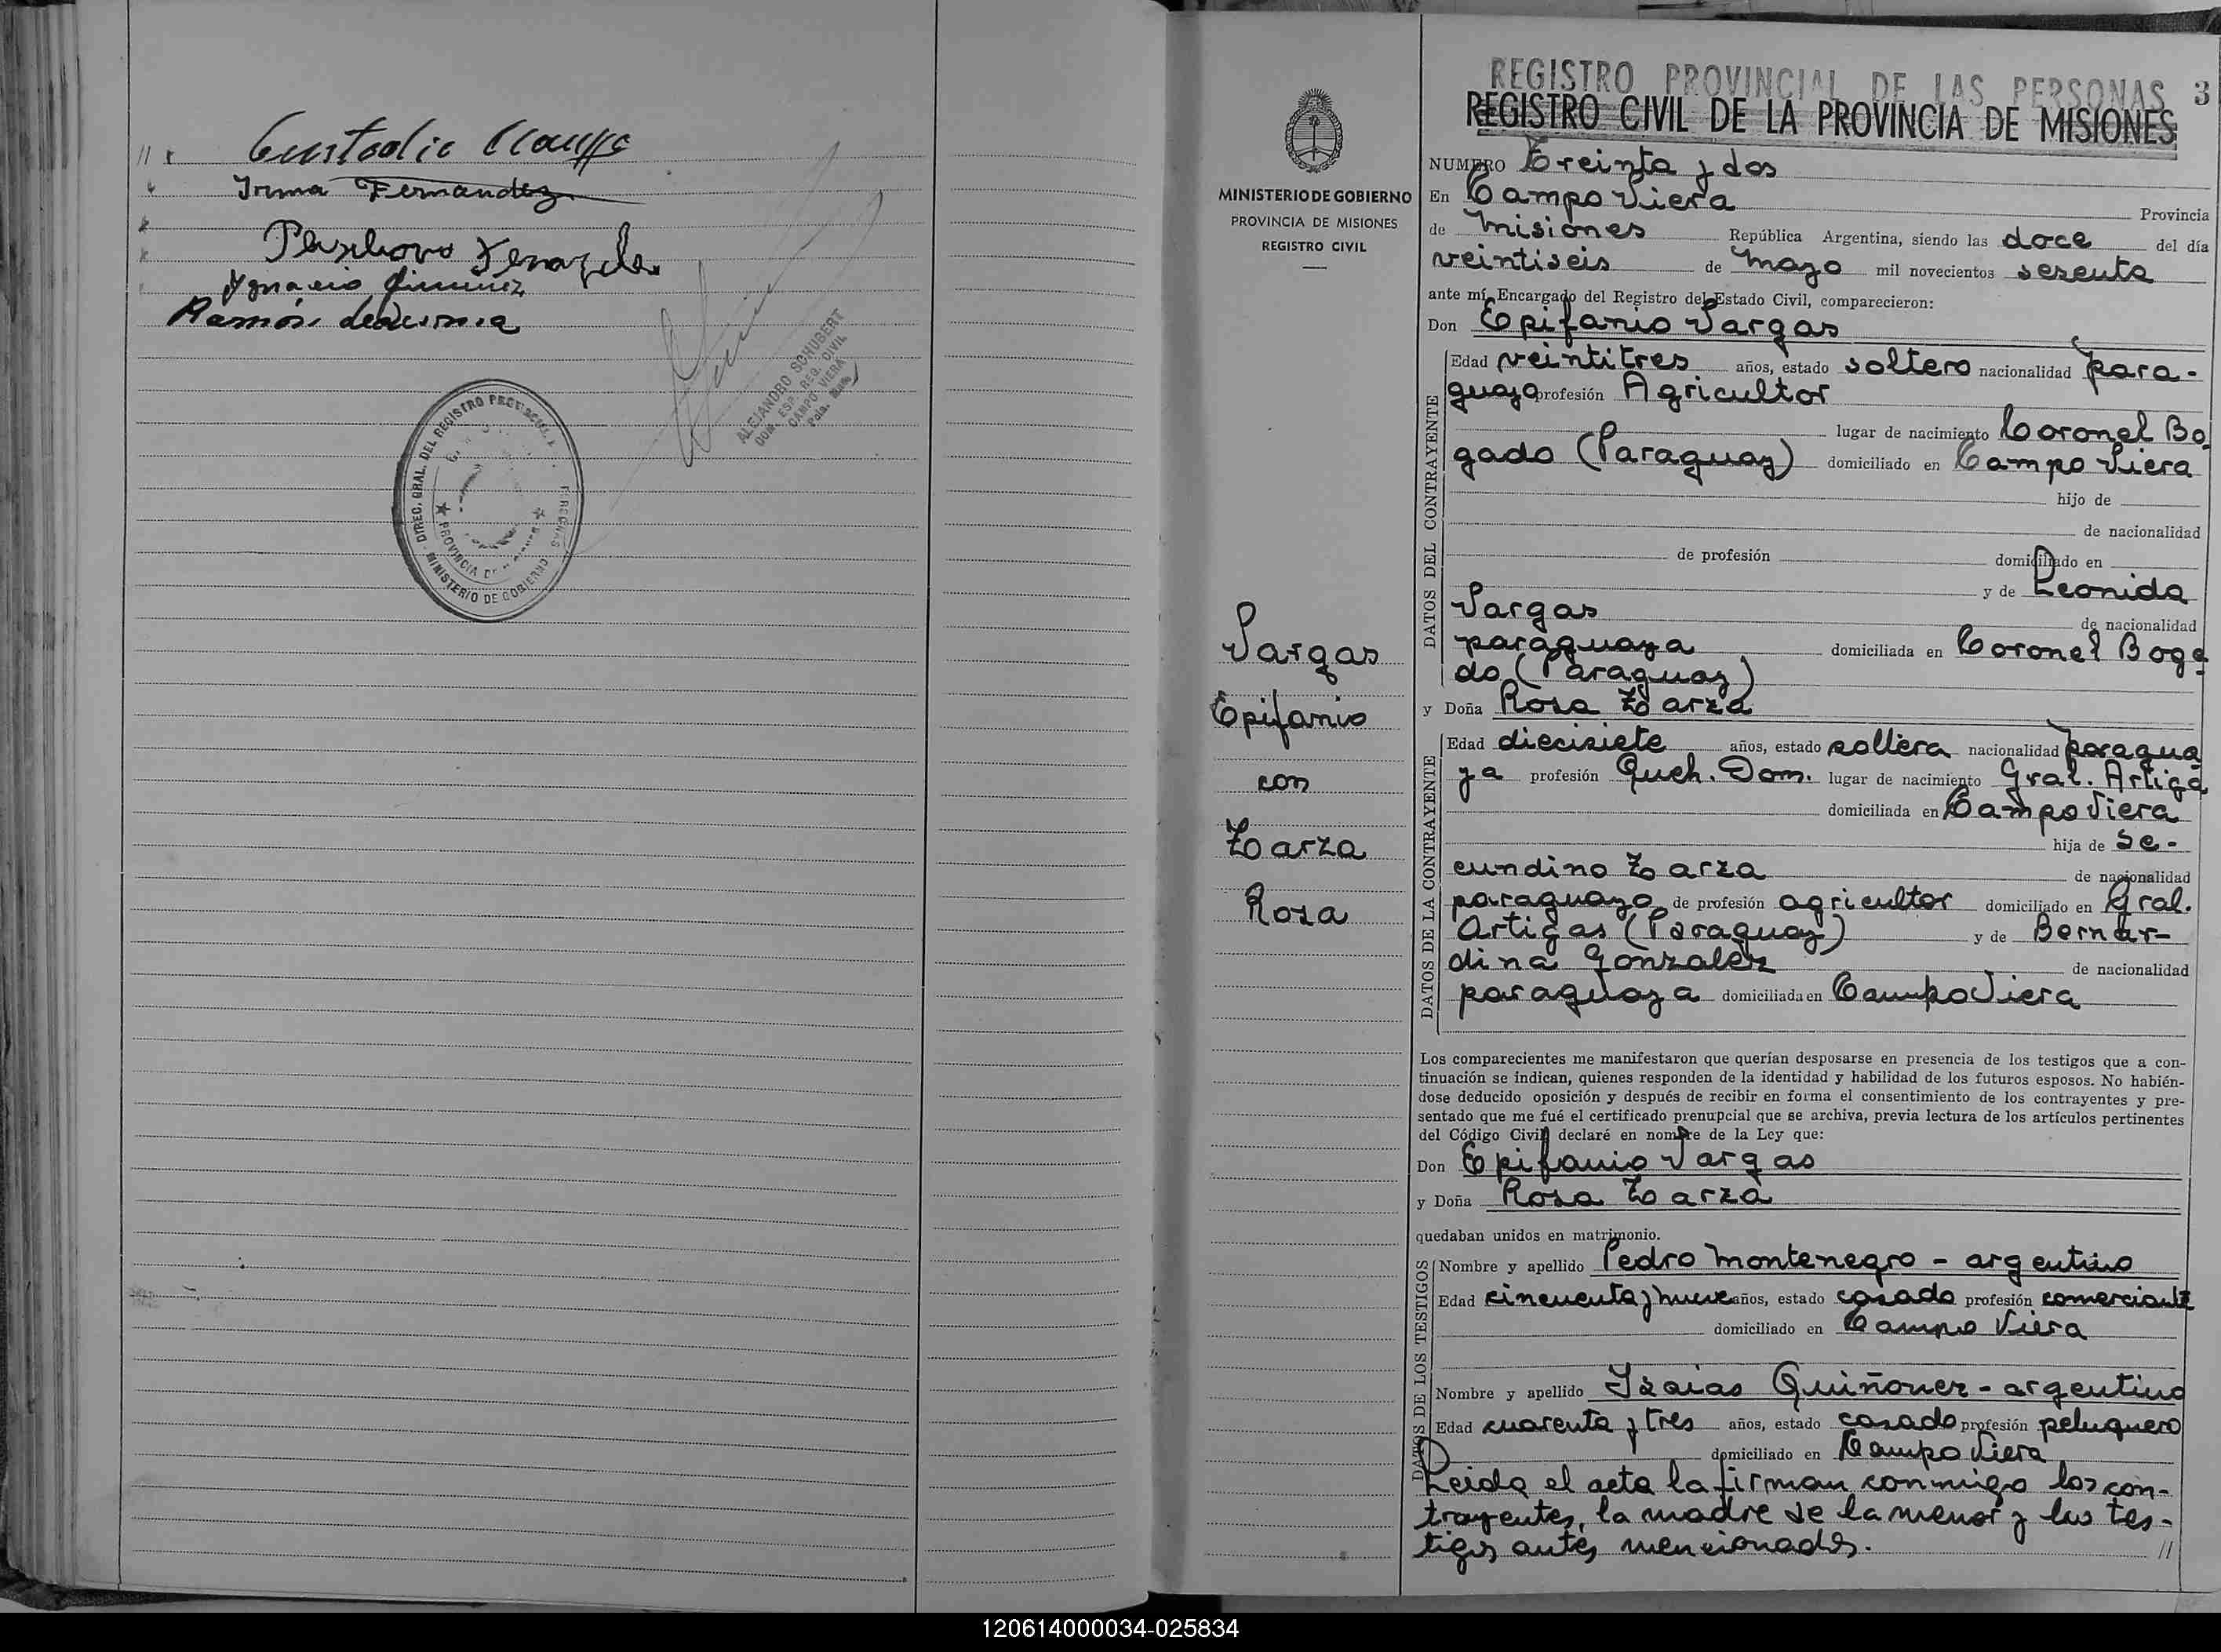 Custodio
Irma Fernandez
Ygnacio Jimenez
Ramón
ALEJANDRO SCHUBERT
REG. CIVIL
CAMPO VIERA
DIREC. GRAL. DEL REGISTRO PROVINCIAL
PERSONAS
MINISTERIO DE GOBIERNO
PROVINCIA DE
MINISTERIO DE GOBIERNO
PROVINCIA DE MISIONES
REGISTRO CIVIL
Vargas
Epifanio
con
Zarza
Rosa
REGISTRO PROVINCIAL DE LAS PERSONAS 3
REGISTRO CIVIL DE LA PROVINCIA DE MISIONES
NUMERO Treinta y dos
En Campo Viera Provincia
de Misiones República Argentina, siendo las doce del día
veintiseis de Mayo mil novecientos sesenta
ante mí, Encargado del Registro del Estado Civil, comparecieron:
Don Epifanio Vargas
DATOS DEL CONTRAYENTE
Edad veintitres años, estado soltero nacionalidad para-
guayo profesión Agricultor
lugar de nacimiento Coronel Bo
gado (Paraguay) domiciliado en Campo Viera
hijo de
de nacionalidad
de profesión domiciliado en
y de Leonida
Vargas de nacionalidad
paraguaya domiciliada en Coronel Boga
do (Paraguay)
y Doña Rosa Zarza
DATOS DE LA CONTRAYENTE
Edad diecisiete años, estado soltera nacionalidad paragua
ya profesión Queh. Dom. lugar de nacimiento Gral. Artiga
domiciliada en Campo Viera
hija de Se-
cundino Zarza de nacionalidad
paraguayo de profesión agricultor domiciliado en Gral.
Artigas (Paraguay) y de Bernar-
dina Gonzalez de nacionalidad
paraguaya domiciliada en Campo Viera
Los comparecientes me manifestaron que querían desposarse en presencia de los testigos que a con-
tinuación se indican, quienes responden de la identidad y habilidad de los futuros esposos. No habién-
dose deducido oposición y después de recibir en forma el consentimiento de los contrayentes y pre-
sentado que me fué el certificado prenupcial que se archiva, previa lectura de los artículos pertinentes
del Código Civil declaré en nombre de la Ley que:
Don Epifanio Vargas
y Doña Rosa Zarza
quedaban unidos en matrimonio.
DATOS DE LOS TESTIGOS
Nombre y apellido Pedro Montenegro - argentino
Edad cincuenta y nueve años, estado casado profesión comerciante
domiciliado en Campo Viera
Nombre y apellido Isaias Quiñonez - argentino
Edad cuarenta y tres años, estado casado profesión peluquero
domiciliado en Campo Viera
Leida el acta la firman conmigo los con-
trayentes, la madre de la menor y los tes-
tigos antes mencionados. //
120614000034-025834